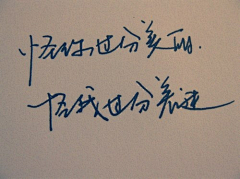 怪你过分美丽.
怪我过分着迷